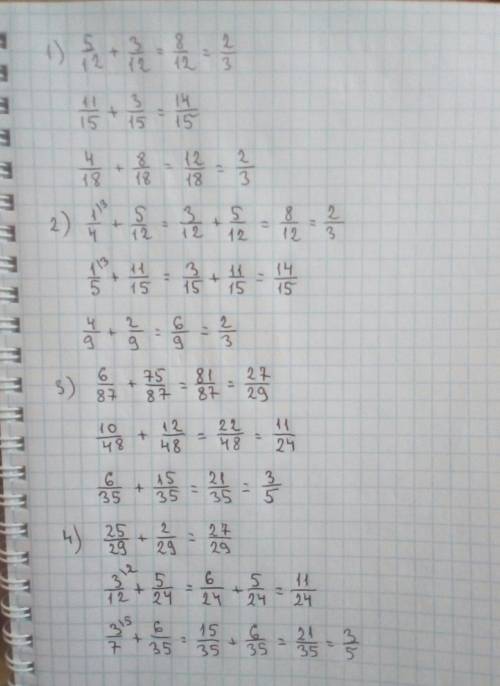 1) 5/12 + 3/12 = 8/12 = 2/3
11/15 + 3/15 = 14/15
4/18 + 8/18 = 12/18 = 2/3
2) 1\3/4 + 5/12 = 3/12 + 5/12 = 8/12 = 2/3
1\3/5 + 11/15 = 3/15 + 11/15 = 14/15
4/9 + 2/9 = 6/9 = 2/3
3) 6/87 + 75/87 = 81/87 = 27/29
10/48 + 12/48 = 22/48 = 11/24
6/35 + 15/35 = 21/35 = 3/5
4) 25/29 + 2/29 = 27/29
3\2/12 + 5/24 = 6/24 + 5/24 = 11/24
3\5/7 + 6/35 = 15/35 + 6/35 = 21/35 = 3/5